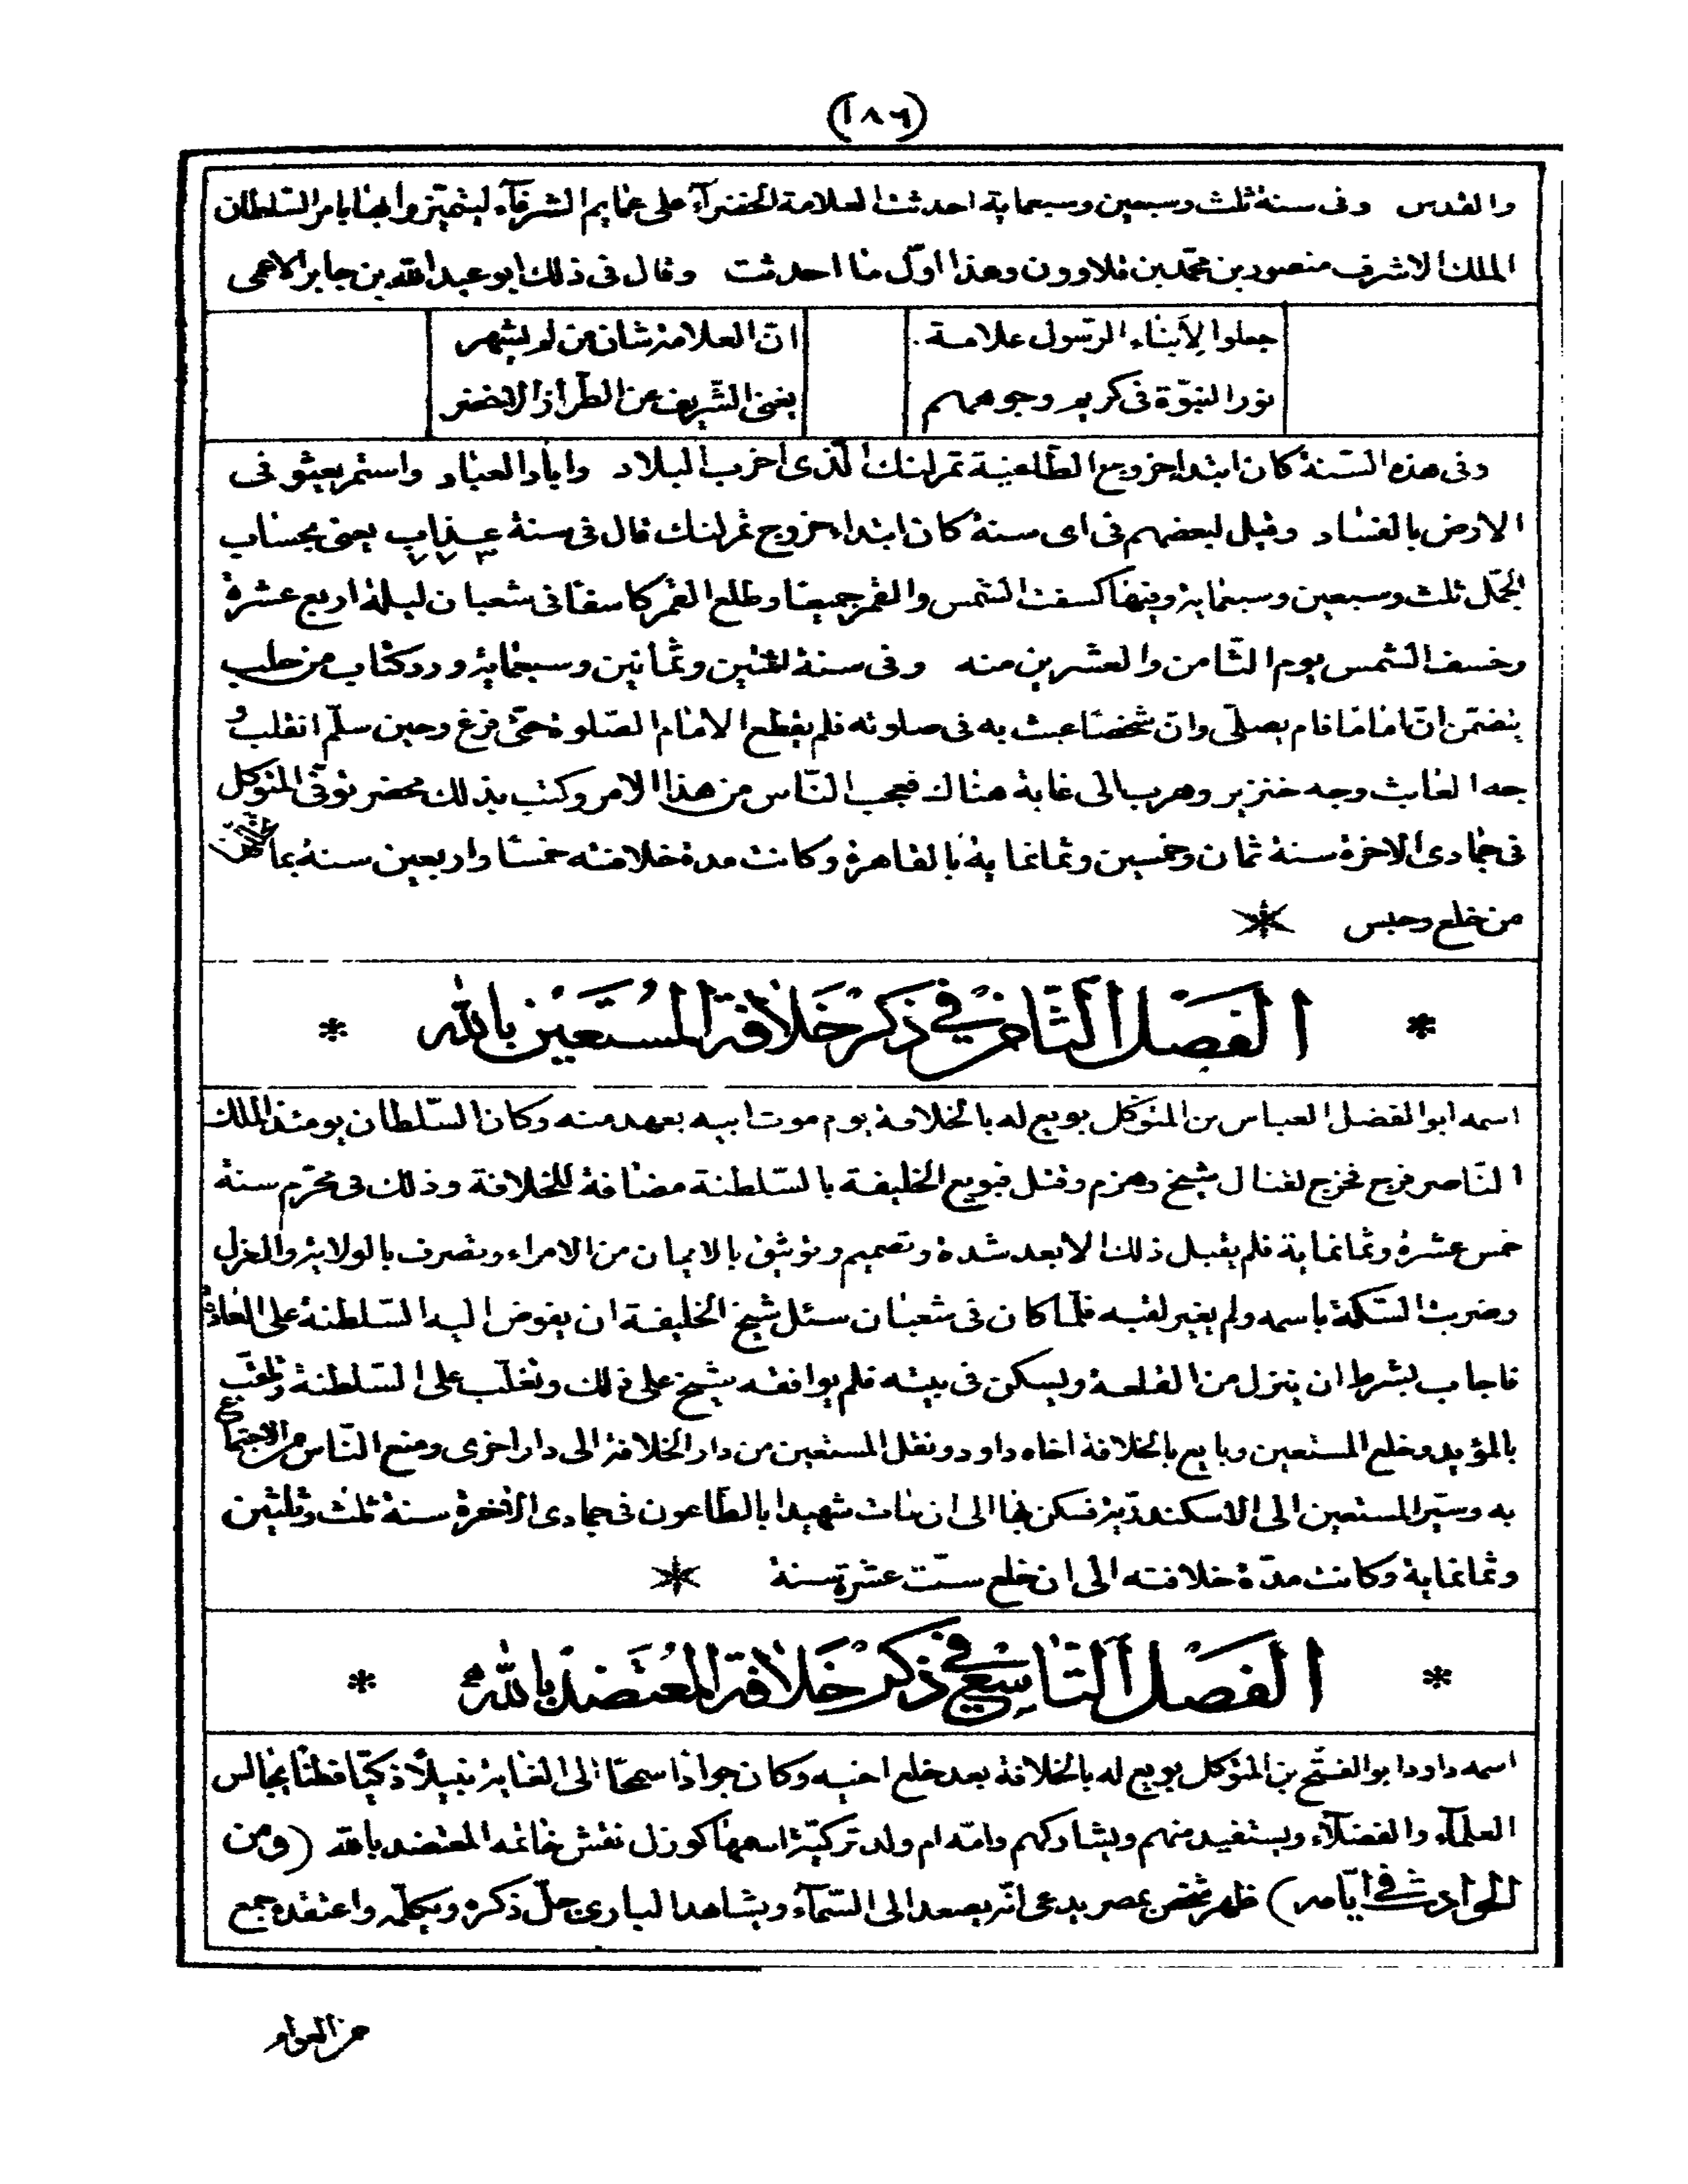 (١٨٦)
والقدس وفى سنة ثلث وسبعين وسبعماية احدثت العلامة الخضرآء على عمايم الشرفآء ليتميزوا بها بامر السّلطان
الملك الاشرف منصور بن محمّد بن قلاوون وهذا اوّل ما احدثت وقال فى ذلك ابو عبد الله بن جابر الاعمى
جعلوا لِأَبناء الرّسول علامة انّ العلامة شان من لم يشهر
نور النبوّة فى كريم وجوههم يغنى الشّريف عن الطّراز الاخضر
وفى هذه السّنة كان ابتدا خروج الطّاغية تمرلنك الّذى اخرب البلاد واباد العباد واستمر يعثو فى
الارض بالفساد وقيل لبعضهم فى اى سنة كان ابتداء خروج تمرلنك قال فى سنة عذاب يعنى بحساب
٧٧٣
الجمّل ثلث وسبعين وسبعماية وفيها كسفت الشّمس والقمر جميعا وطلع القمر كاسفا فى شعبان ليلة اربع عشرة
وخسف الشمس يوم الثّامن والعشرين منه وفى سنة اثنين وثمانين وسبعماية ورد كتاب من حلب
يتضمن انّ اماما قام يصلّى وانّ شخصا عبث به فى صلوته فلم يقطع الامام الصّلوة حتّى فرغ وحين سلّم انقلب و
جه العابث وجه خنزير وهرب الى غابة هناك فعجب النّاس من هذا الامر وكتب بذلك محضر توفّى المتوكل
فى جمادى الاخرة سنة ثمان وخمسين وثمانماية بالقاهرة وكانت مدة خلافته خمسا واربعين سنة بما
من خلع وحبس
الفصل الثّامن فى ذكر خلافة المستعين بالله
اسمه ابو الفضل العباس بن المتوكّل بويع له بالخلافة يوم موت ابيه بعهد منه وكان السّلطان يومئذ الملك
النّاصر فرج فخرج لقتال شيخ وهزم وقتل فبويع الخليفة بالسّلطنة مضافة للخلافة وذلك فى محرّم سنة
خمس عشرة وثمانماية فلم يقبل ذلك الا بعد شدة وتصميم وتوثيق بالايمان من الامراء وتصرف بالولاية والعزل
وضربت السّكة باسمه ولم يغير لقبه فلمّا كان فى شعبان سئل شيخ الخليفة ان يفوض اليه السّلطنة على العادة
فاجاب بشرط ان ينزل من القلعة ويسكن فى بيته فلم يوافقه شيخ على ذلك وتغلّب على السّلطنة وتلقّب
بالمؤيد وخلع المستعين وبايع بالخلافة اخاه داود ونقل المستعين من دار الخلافة الى دار اخرى ومنع النّاس من الاجتماع
به وسيّر المستعين الى الاسكندريّة فسكن بها الى ان مات شهيدا بالطّاعون فى جمادى الاخرة سنة ثلث وثلثين
وثمانماية وكانت مدّة خلافته الى ان خلع ستّ عشرة سنة
الفصل التّاسع فى ذكر خلافة المعتضد بالله
اسمه داود ابو الفتح بن المتوكل بويع له بالخلافة بعد خلع اخيه وكان جوادا سمحًا الى الغاية نبيلًا ذكيّا فطنا يجالس
العلمآء والفضلآء ويستفيد منهم ويشاركهم وامّه ام ولد تركيّة اسمها كوزل نقش خاتمه المعتضد بالله (ومن
الحوادث فى ايّامه) ظهر شخص بمصر يدعى انّه يصعد الى السّمآء ويشاهد البارى جلّ ذكره ويكلّمه واعتقده جمع
من العوام